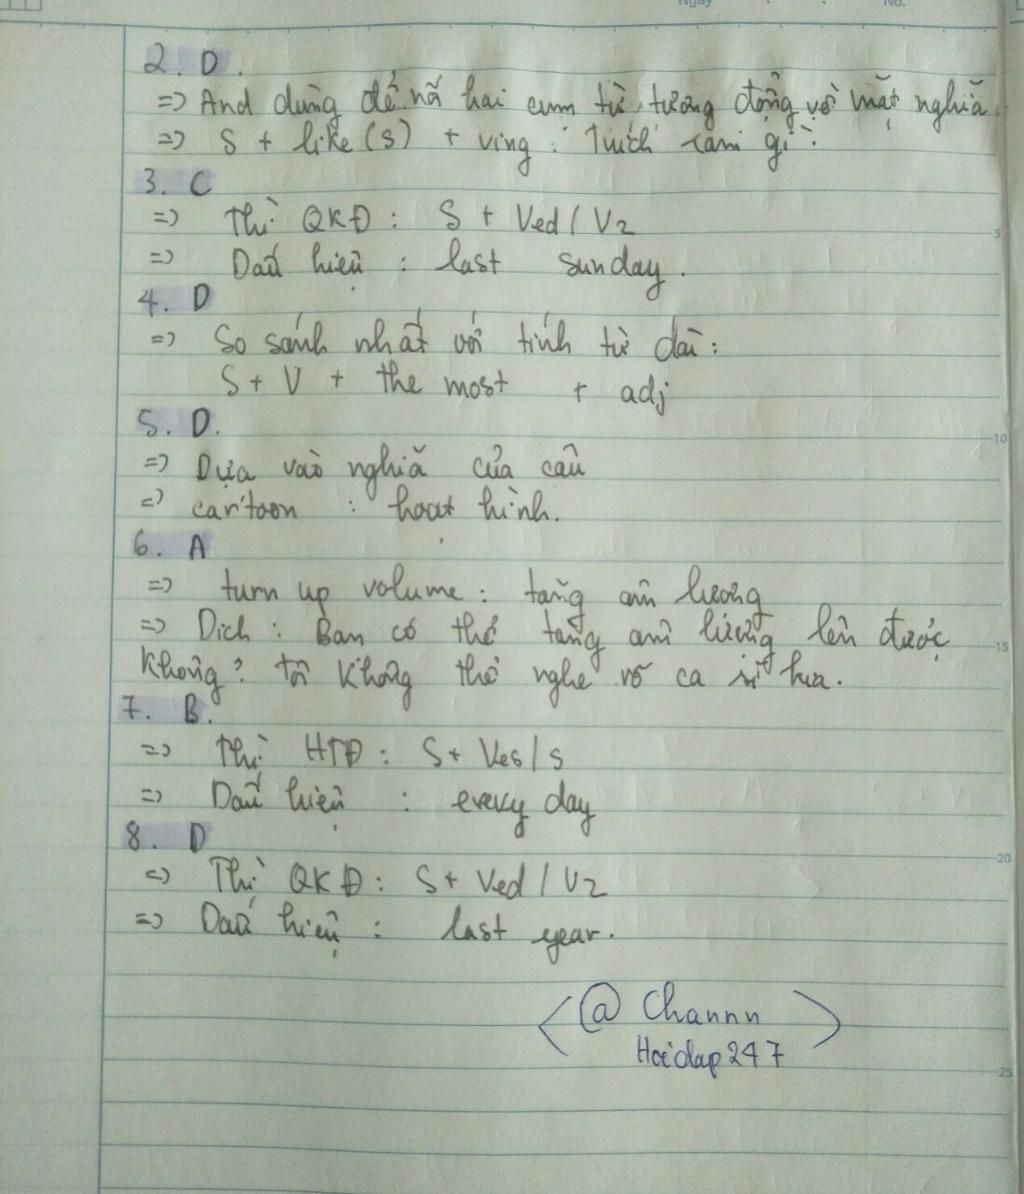 Ngày No.
2. D.
=> And dùng để nối hai cụm từ tương đồng với mặt nghĩa.
=> S + like(s) + ving : Thích làm gì.
3. C
=> Thì QKĐ : S + Ved / V2
=> Dấu hiệu : last sunday.
4. D
=> So sánh nhất với tính từ dài :
S + V + the most + adj
5. D.
=> Dựa vào nghĩa của câu
=> cartoon : hoạt hình.
6. A
=> turn up volume : tăng âm lượng
=> Dịch : Bạn có thể tăng âm lượng lên được
không? tôi không thể nghe rõ ca sĩ hát.
7. B.
=> Thì HTĐ : S + Ves / s
=> Dấu hiệu : every day
8. D
=> Thì QKĐ : S + Ved / V2
=> Dấu hiệu : last year.
<@ Channn>
Hoidap247
5
10
15
20
25